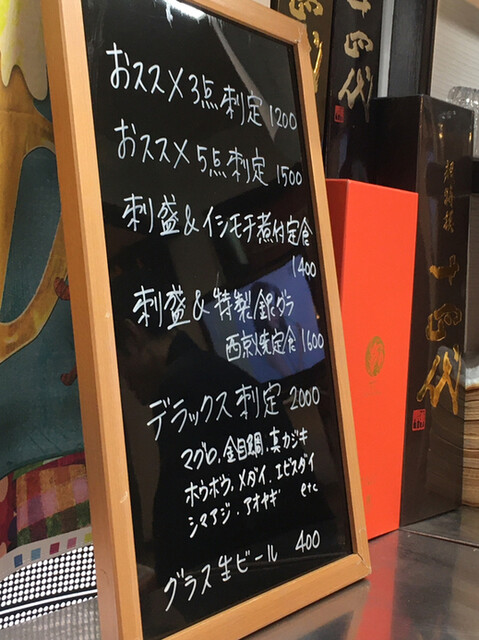 おススメ3点刺定 1200
おススメ5点刺定 1500
刺盛&イシモチ煮付定食
1400
刺盛&特製銀ダラ
西京焼定食 1600
デラックス刺定 2000
マグロ、金目鯛、真カジキ
ホウボウ、メダイ、エビスダイ
シマアジ、アオヤギ etc
グラス生ビール 400
十四代
十四代